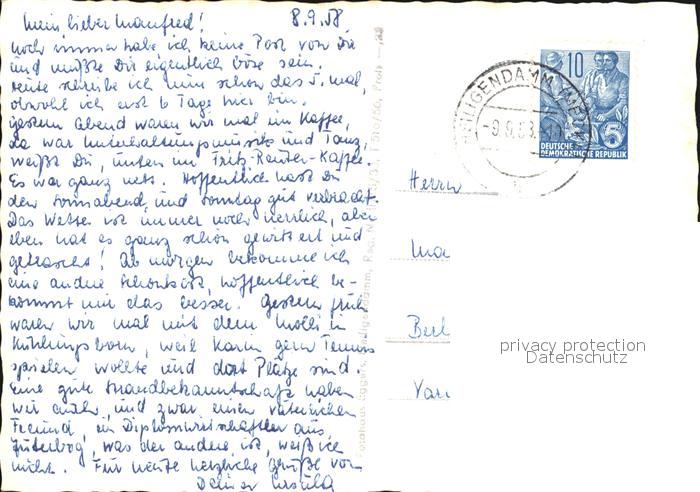 Mein lieber Manfred! 8.9.58
noch immer habe ich keine Post von Dir
und müßte Dir eigentlich böse sein.
Heute schreibe ich nun schon das 5. mal,
obwohl ich erst 6 Tage hier bin.
Gestern Abend waren wir mal im Kaffee,
da war Unterhaltungsmusik und Tanz,
weißt Du, unten im Fritz-Reuter-Kaffee.
Es war ganz nett. Hoffentlich hast Du
den Sonnabend und Sonntag gut verbracht.
Das Wetter ist immer noch herrlich, aber
eben hat es ganz schön gewittert und
! Ab morgen bekomme ich
eine andre Schonkost, hoffentlich be-
kommt mir das besser. Gestern früh
waren wir mal mit dem Molli in
Kühlungsborn, weil Karin gern Tennis
spielen wollte und dort Plätze sind.
Eine gute Strandbekanntschaft haben
wir auch, und zwar einen väterlichen
Freund, ein Diplomwirtschaftler aus
Jüterbog, was der andere ist, weiß ich
nicht. Für heute herzliche Grüße von
Deiner Ursula
Herrn
Ma
Berl
HEILIGENDAMM
10
5
DEUTSCHE
DEMOKRATISCHE REPUBLIK
privacy protection
Datenschutz